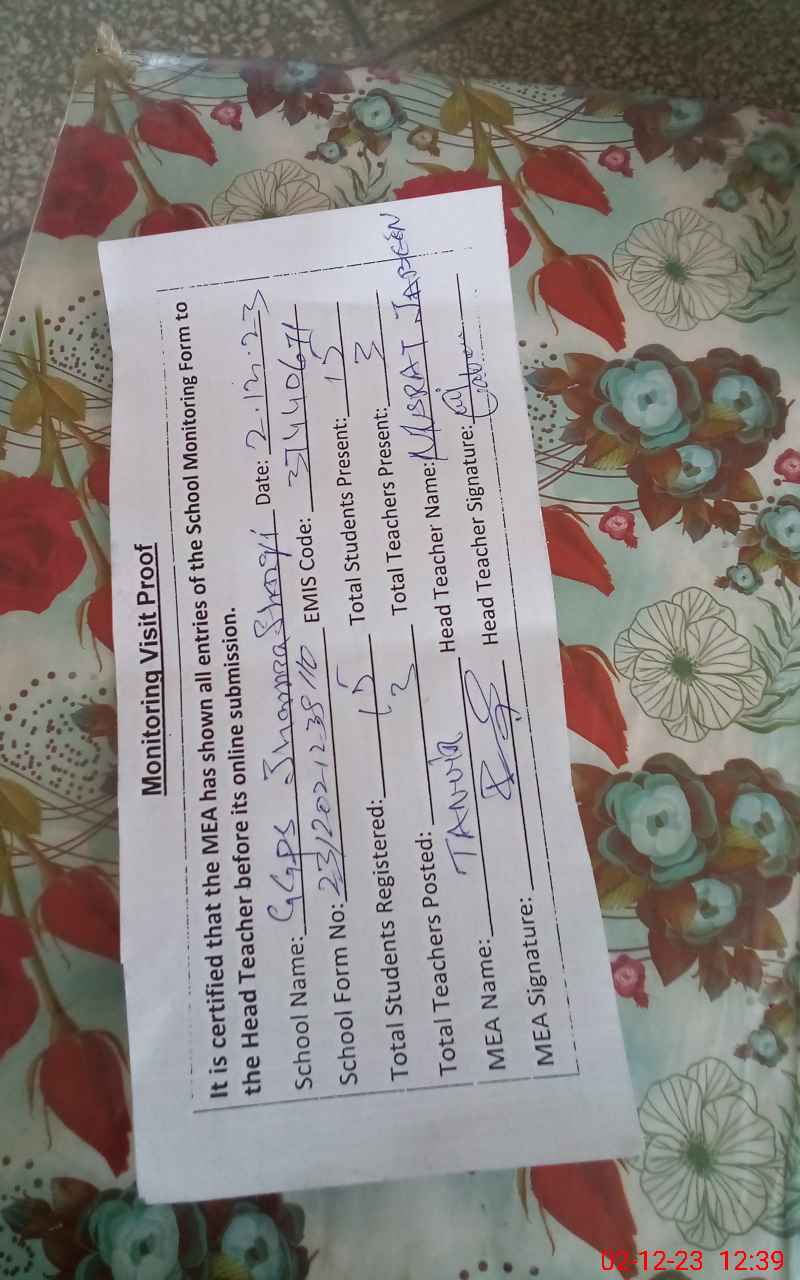 Monitoring Visit Proof
It is certified that the MEA has shown all entries of the School Monitoring Form to
the Head Teacher before its online submission.
School Name: GGPS Date: 2.12.23
School Form No: EMIS Code: 37440671
Total Students Registered: 15 Total Students Present: 15
Total Teachers Posted: 3 Total Teachers Present: 3
MEA Name: TANVIR Head Teacher Name: NUSRAT JABEEN
MEA Signature: Head Teacher Signature:
02-12-23 12:39